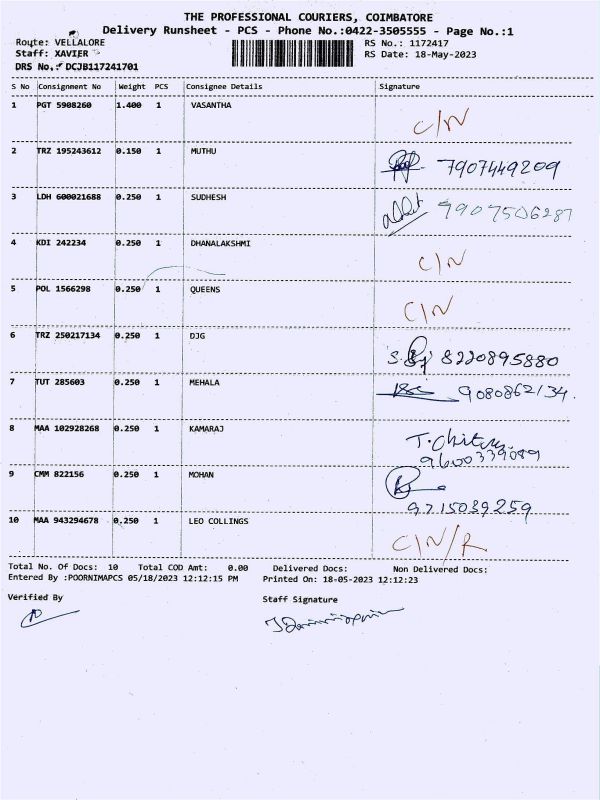 THE PROFESSIONAL COURIERS, COIMBATORE
Delivery Runsheet - PCS - Phone No.:0422-3505555 - Page No.:1
Route: VELLALORE
RS No.: 1172417
Staff: XAVIER
RS Date: 18-May-2023
DRS No.: DCJB117241701
S No Consignment No Weight PCS Consignee Details Signature
1 PGT 5908260 1.400 1 VASANTHA C/N
2 TRZ 195243612 0.150 1 MUTHU 7907449209
3 LDH 600021688 0.250 1 SUDHESH 9907506287
4 KDI 242234 0.250 1 DHANALAKSHMI C/N
5 POL 1566298 0.250 1 QUEENS C/N
6 TRZ 250217134 0.250 1 DJG 8220895880
7 TUT 285603 0.250 1 MEHALA 9080862134.
8 MAA 102928268 0.250 1 KAMARAJ 9600339089
9 CMM 822156 0.250 1 MOHAN 9715039259
10 MAA 943294678 0.250 1 LEO COLLINGS C/N/R
Total No. Of Docs: 10 Total COD Amt: 0.00 Delivered Docs: Non Delivered Docs:
Entered By :POORNIMAPCS 05/18/2023 12:12:15 PM Printed On: 18-05-2023 12:12:23
Verified By Staff Signature